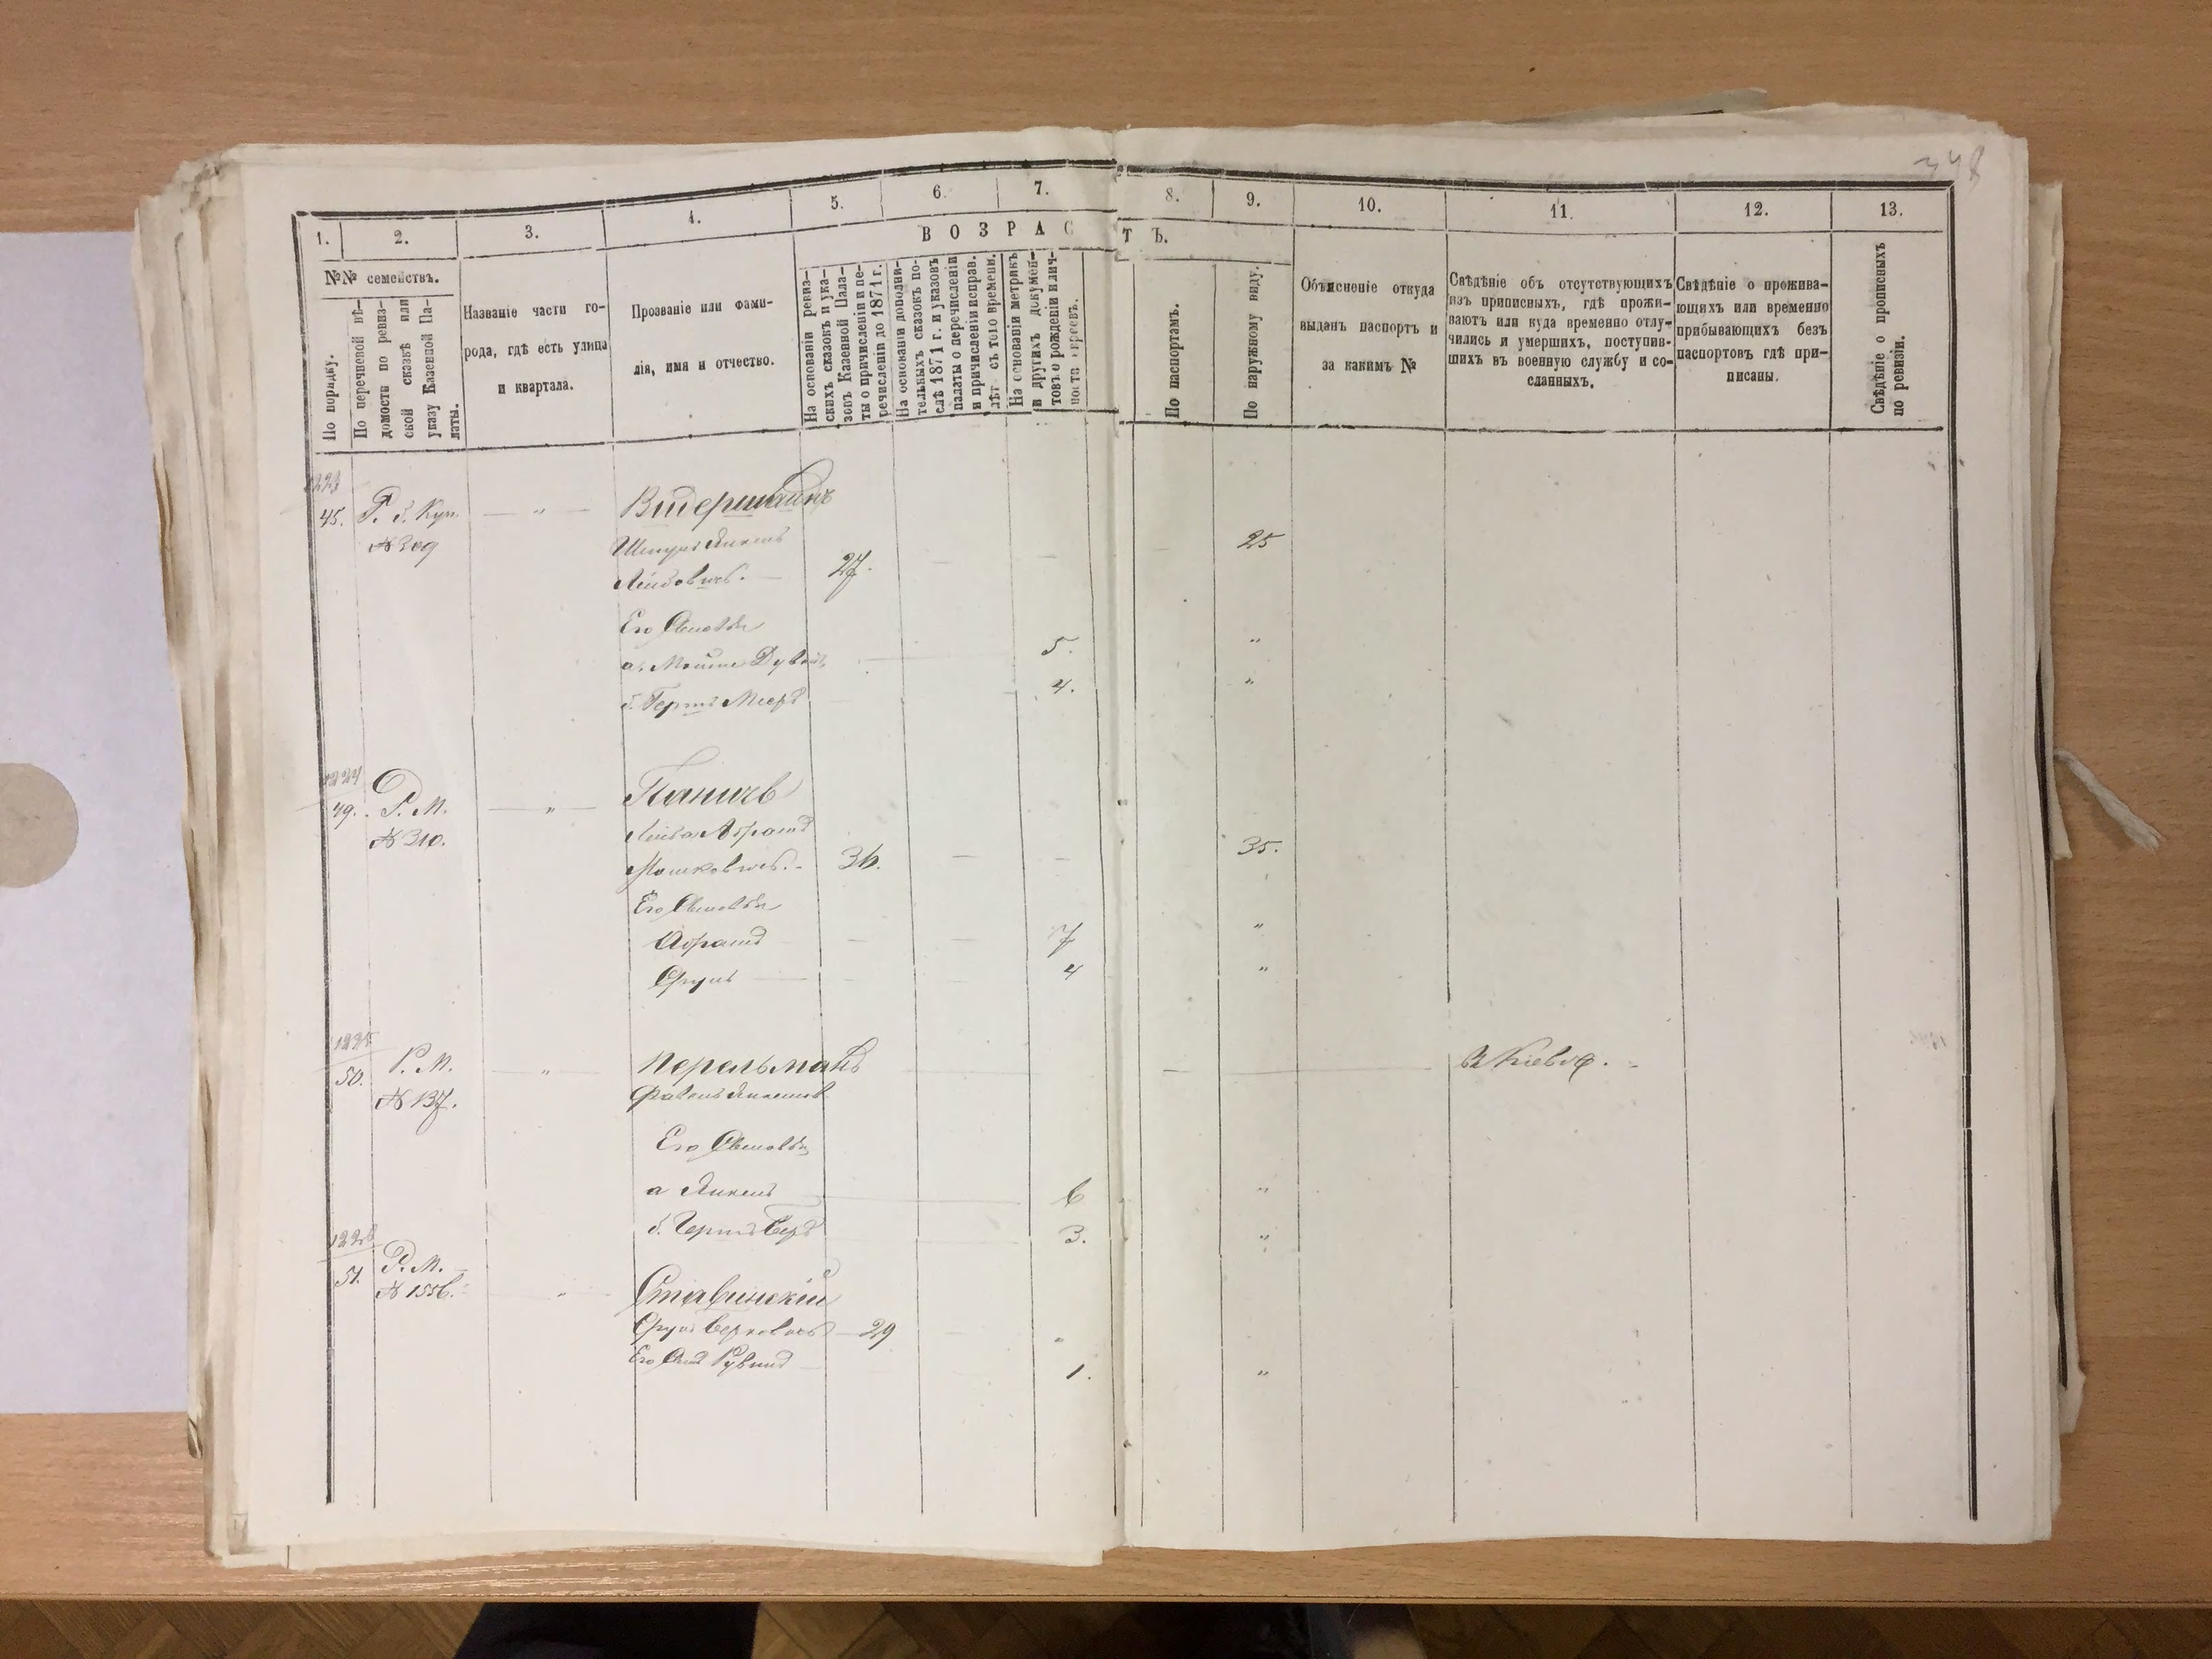 348
1. 2. 3. 4. 5. 6. 7. 8. 9. 10. 11. 12. 13.
В О З Р А С Т Ъ.
№№ семействъ.
По порядку.
По перечневой вѣ-
домости по ревиз-
ской сказкѣ или
указу Казенной Па-
латы.
Названіе части го-
рода, гдѣ есть улица
и квартала.
Прозваніе или фами-
лія, имя и отчество.
На основаніи ревиз-
скихъ сказокъ и ука-
зовъ Казенной Пала-
ты о причисленіи и пе-
речисленіи до 1871 г.
На основаніи дополни-
тельныхъ сказокъ по-
слѣ 1871 г. и указовъ
палаты о перечисленіи
и причисленіи исправ.
лѣт съ того времени.
На основаніи метрикъ
и другихъ докумен-
товъ о рожденіи и лич-
ности евреевъ.
По паспортамъ.
По наружному виду.
Объясненіе откуда
выданъ паспортъ и
за какимъ №
Свѣдѣніе объ отсутствующихъ
изъ приписныхъ, гдѣ прожи-
ваютъ или куда временно отлу-
чились и умершихъ, поступив-
шихъ въ военную службу и со-
сланныхъ.
Свѣдѣніе о прожива-
ющихъ или временно
прибывающихъ безъ
паспортовъ гдѣ при-
писаны.
Свѣдѣніе о прописныхъ
по ревизіи.
1223
45. Р. б. Куп. „
№ 309
Янкель 25
Лейбовичъ. 27.
Его Сыновья
а. Мойше Дувидъ 5. „
б. Гершъ Мееръ 4. „
1224
49. Р. М. „
№ 310.
Лейба Абрамъ
Мошковичъ. 36. 35.
Его Сыновья
Абрамъ 7 „
Сруль 4 „
1225
50. Р. М. „ Перельманъ въ Кіевѣ.
№ 137.
Его Сыновья
а Янкель 6 „
б. Гершъ Беръ 3. „
1226
51. Р. М. „ Ставинскій
№ 1556.
Сруль Берковичъ 29 „
Его Сынъ Рувинъ 1. „